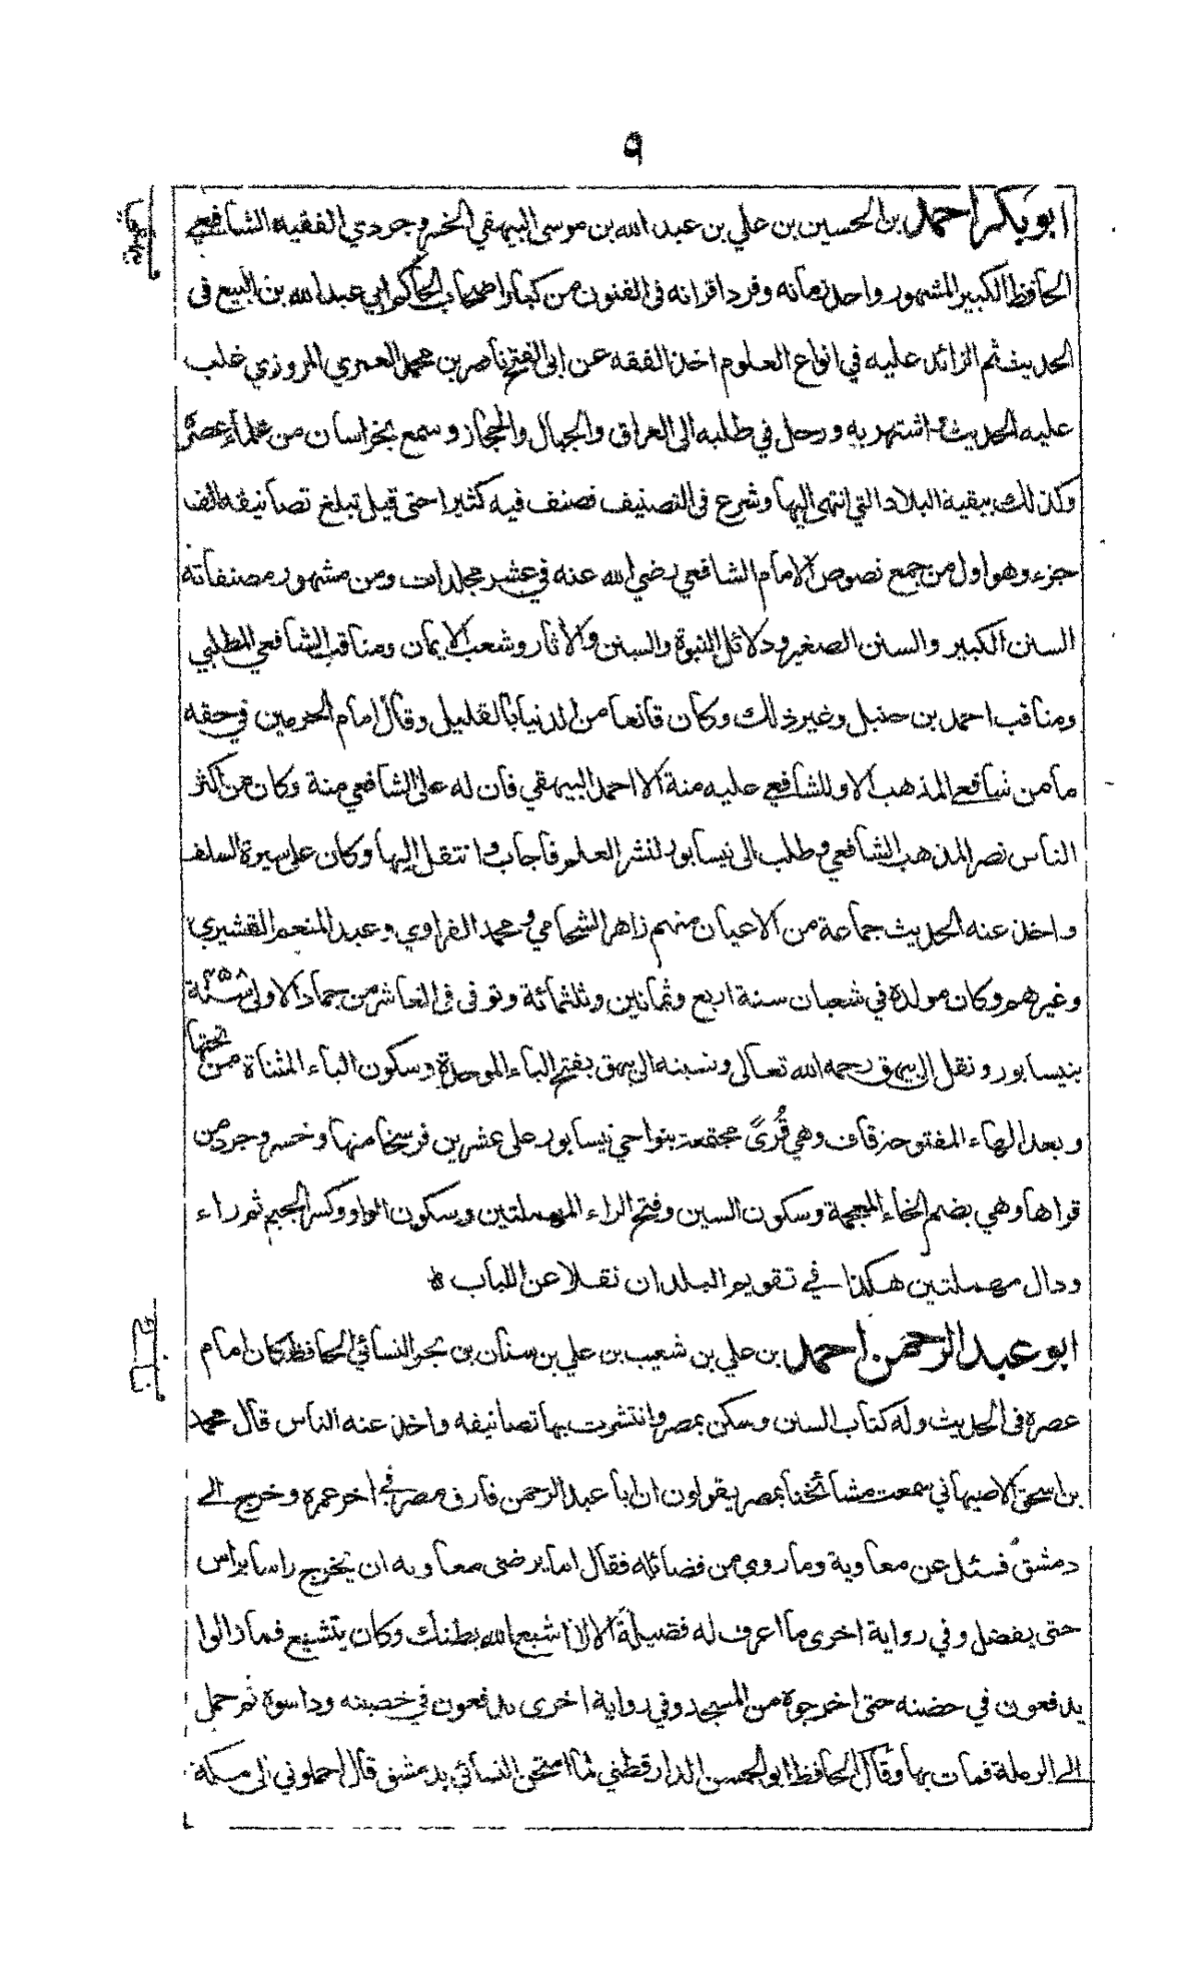 ٩
ابو بكر احمد بن الحسين بن علي بن عبد الله بن موسى البيهقي الخسروجردي الفقيه الشافعي
الحافظ الكبير المشهور واحد زمانه وفرد اقرانه في الفنون من كبار اصحاب الحاكم ابي عبد الله بن البيع في
الحديث ثم الزائد عليه في انواع العلوم اخذ الفقه عن ابي الفتح ناصر بن محمد العمري المروزي غلب
عليه الحديث واشتهر به ورحل في طلبه الى العراق والجبال والحجاز وسمع بخراسان من علماء عصره
وكذلك ببقية البلاد التي انتهى اليها وشرع في التصنيف فصنف فيه كثيرا حتى قيل تبلغ تصانيفه الف
جزء وهو اول من جمع نصوص الامام الشافعي رضي الله عنه في عشر مجلدات ومن مشهور مصنفاته
السنن الكبير والسنن الصغير ودلائل النبوة والسنن والآثار وشعب الايمان ومناقب الشافعي المطلبي
ومناقب احمد بن حنبل وغير ذلك وكان قانعا من الدنيا بالقليل وقال امام الحرمين في حقه
ما من شافعي المذهب الا وللشافعي عليه منة الا احمد البيهقي فان له على الشافعي منة وكان من اكثر
الناس نصر المذهب الشافعي وطلب الى نيسابور لنشر العلم فاجاب وانتقل اليها وكان على سيرة السلف
واخذ عنه الحديث جماعة من الاعيان منهم زاهر الشحامي ومحمد الفراوي وعبد المنعم القشيري
وغيرهم وكان مولده في شعبان سنة اربع وثمانين وثلثمائة وتوفى في العاشر من جماد الاولى سنة ٤٥٨
بنيسابور ونقل الى بيهق رحمه الله تعالى ونسبته الى بيهق بفتح الباء الموحدة وسكون الياء المثناة من تحتها
وبعد الهاء المفتوحة قاف وهي قُرًى مجتمعة بنواحي نيسابور على عشرين فرسخا منها وخسروجرد من
قراها وهي بضم الخاء المعجمة وسكون السين وفتح الراء المهملتين وسكون الواو وكسر الجيم ثم راء
ودال مهملتين هكذا في تقويم البلدان نقلا عن اللباب
ابو عبد الرحمن احمد بن علي بن شعيب بن علي بن سنان بن بحر النسائي الحافظ كان امام
عصره في الحديث وله كتاب السنن وسكن بمصر وانتشرت بها تصانيفه واخذ عنه الناس قال محمد
بن اسحق الاصبهاني سمعت مشائخنا بمصر يقولون ان ابا عبد الرحمن فارق مصر في آخر عمره وخرج الى
دمشق فسئل عن معاوية وما روي من فضائله فقال اما يرضى معاويه ان يخرج راسا براس
حتى يفضل وفي رواية اخرى ما اعرف له فضيلة الا لا اشبع الله بطنك وكان يتشيع فما زالوا
يدفعون في حضنه حتى اخرجوه من المسجد وفي رواية اخرى يدفعون في خصييه وداسوه ثم حمل
الى الرملة فمات بها وقال الحافظ ابو الحسن الدارقطني لما امتحن النسائي بدمشق قال احملوني الى مكة